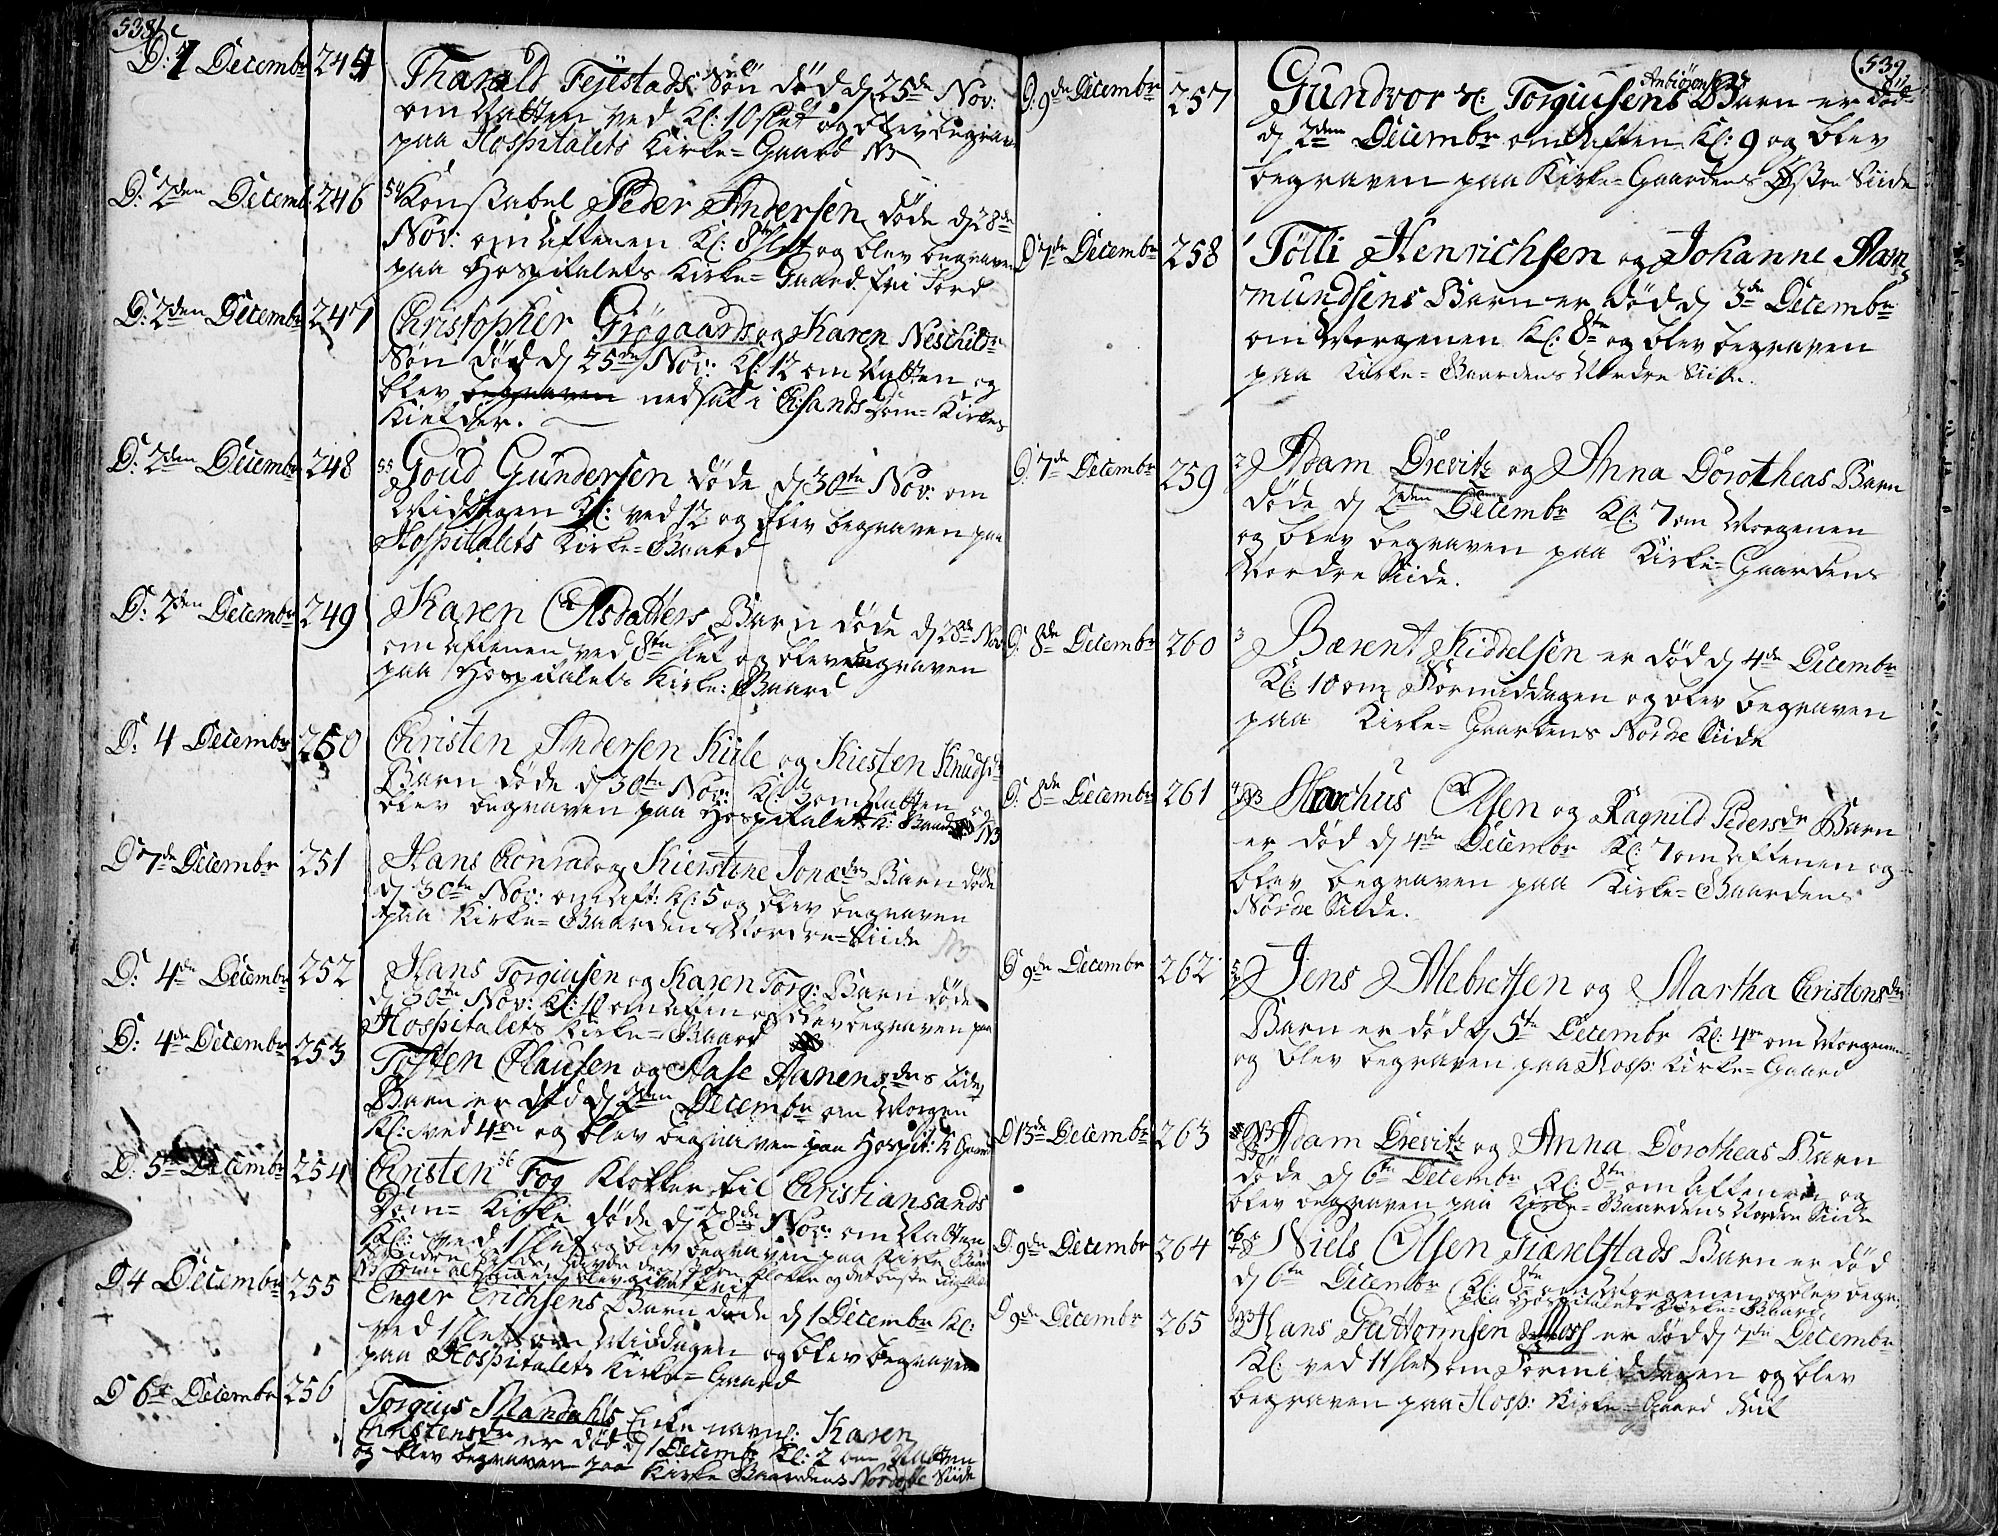 538
D: 1 Decembr 245 Tharald Fejestads Søn død d 25de Nov:
om Natten ved Kl: 10 slet og blev begraven
paa Hospitalets Kirke=Gaard NB
D: 2den Decemb 246 54 Konstabel Peder Andersen døde d 28de
Nov: om Aftenen Kl: 8te slet og blev begraven
paa Hospitalets Kirke=Gaard fri Jord
D: 2den Decembr 247 Christopher Grøgaards og Karen Neschildr
Søn død d 25de Nov: Kl: 12 om Natten og
blev begraven nedsat i Chsands Dom=Kirkes
Kielder.
D: 2den Decembr 248 55 Goud Gundersen døde d 30te Nov: om
Middagen Kl: ved 12 og blev begraven paa
Hospitalets Kirke=Gaard
D: 2den Decembr 249 Karen Olsdatters Barn døde d 28de Nov
om Aftenen ved 8te slet og blev begraven
paa Hospitalets Kirke=Gaard
D: 4 Decembr 250 Christen Andersen Kiile og Kiesten Knudsdr
Barn døde d 30te Nov: Kl: 3 om Natten og
blev begraven paa Hospitalets K: Gaard NB
D 7de Decembr 251 Hans Conrad og Kierstine Jonædrs Barn døde
d 30te Nov: om Aft: Kl: 5 og blev begraven
paa Kirke=Gaardens Nordre=Siide NB
D: 4de Decembr 252 Hans Torgiusen og Karen Torg: Barn døde
d 30te Nov: Kl: 10 om Aften og blev begraven paa
Hospitalets Kirke=Gaard
D: 4de Decembr 253 Tosten Clausen og Aase Aanensdes
Barn er død d 2den Decembr om Morgen
Kl: ved 4re og blev begraven paa Hospit: K Gaard
D: 5te Decembr 254 Christen 56 Fog Klokker til Christiansands
Dom=Kirke døde d 28de Nov: om Natten
Kl: ved 1 slet og blev begraven paa Kirke Gaard
Enger Erichsens Barn døde d 1 Decembr Kl:
D 4 Decembr 255
ved 1 slet om Middagen og blev begraven
paa Hospitalets Kirke=Gaard
D 6te Decembr 256 Torgius Mandahls Enke navnl: Karen
Christensdr er død d 1 Decembr Kl: 2 om Natten
og blev begraven paa Kirke Gaardens Nordre Siide
539
D: 9de Decembr 257 Gundvor og Torgiusens Barn er død
d 2den Decembr om Aften Kl: 9 og blev
begraven paa Kirke=Gaardens Østre Siide
D 7de Decembr 258 1 Tølli Henrichsen og Johanne Aam
mundsens Barn er død d 3de Decembr
om Morgenen Kl: 8te og blev begraven
paa Kirke=Gaardens Nordre Siide.
D: 7de Decembr 259 2 Adam Drevitz og Anna Dorotheas Barn
døde d 2den Decembr Kl: 7 om Morgenen
og blev begraven paa Kirke=Gaardens
Nordre Siide.
D: 8de Decembr 260 3 Bærent Kiddelsen er død d 4de Decembr
Kl: 10 om Formiddagen og blev begraven
paa Kirke=Gaardens Nordre Siide
D: 8de Decembr 261 4 NB Marchus Olsen og Ragnild Pedersdr Barn
er død d 4de Decembr Kl: 7 om Aftenen og
blev begraven paa Kirke=Gaardens
Nordre Siide.
D 9de Decembr 262 5 Jens Alebretsen og Martha Christensdr
Barn er død d 5te Decembr Kl: 4re om Morgenen
og blev begraven paa Hosp: Kirke=Gaard
D 13de Decembr 263 NB Adam Drevitz og Anna Dorotheas Barn
døde d 6te Decembr Kl: 8te om Aftenen og
blev begraven paa Kirke=Gaardens Nordre Siide
D: 9de Decembr 264 Niels Olsen Giærelstads Barn er død
d 6te Decembr Kl: 8te om Morgenen og blev begr:
paa Hospitalets Kirke=Gaard
D 9de Decembr 265 Hans Guttormsen Moss er død d 7de Decembr
Kl: ved 11 slet om Formiddagen og blev
begraven paa Hosp: Kirke=Gaard